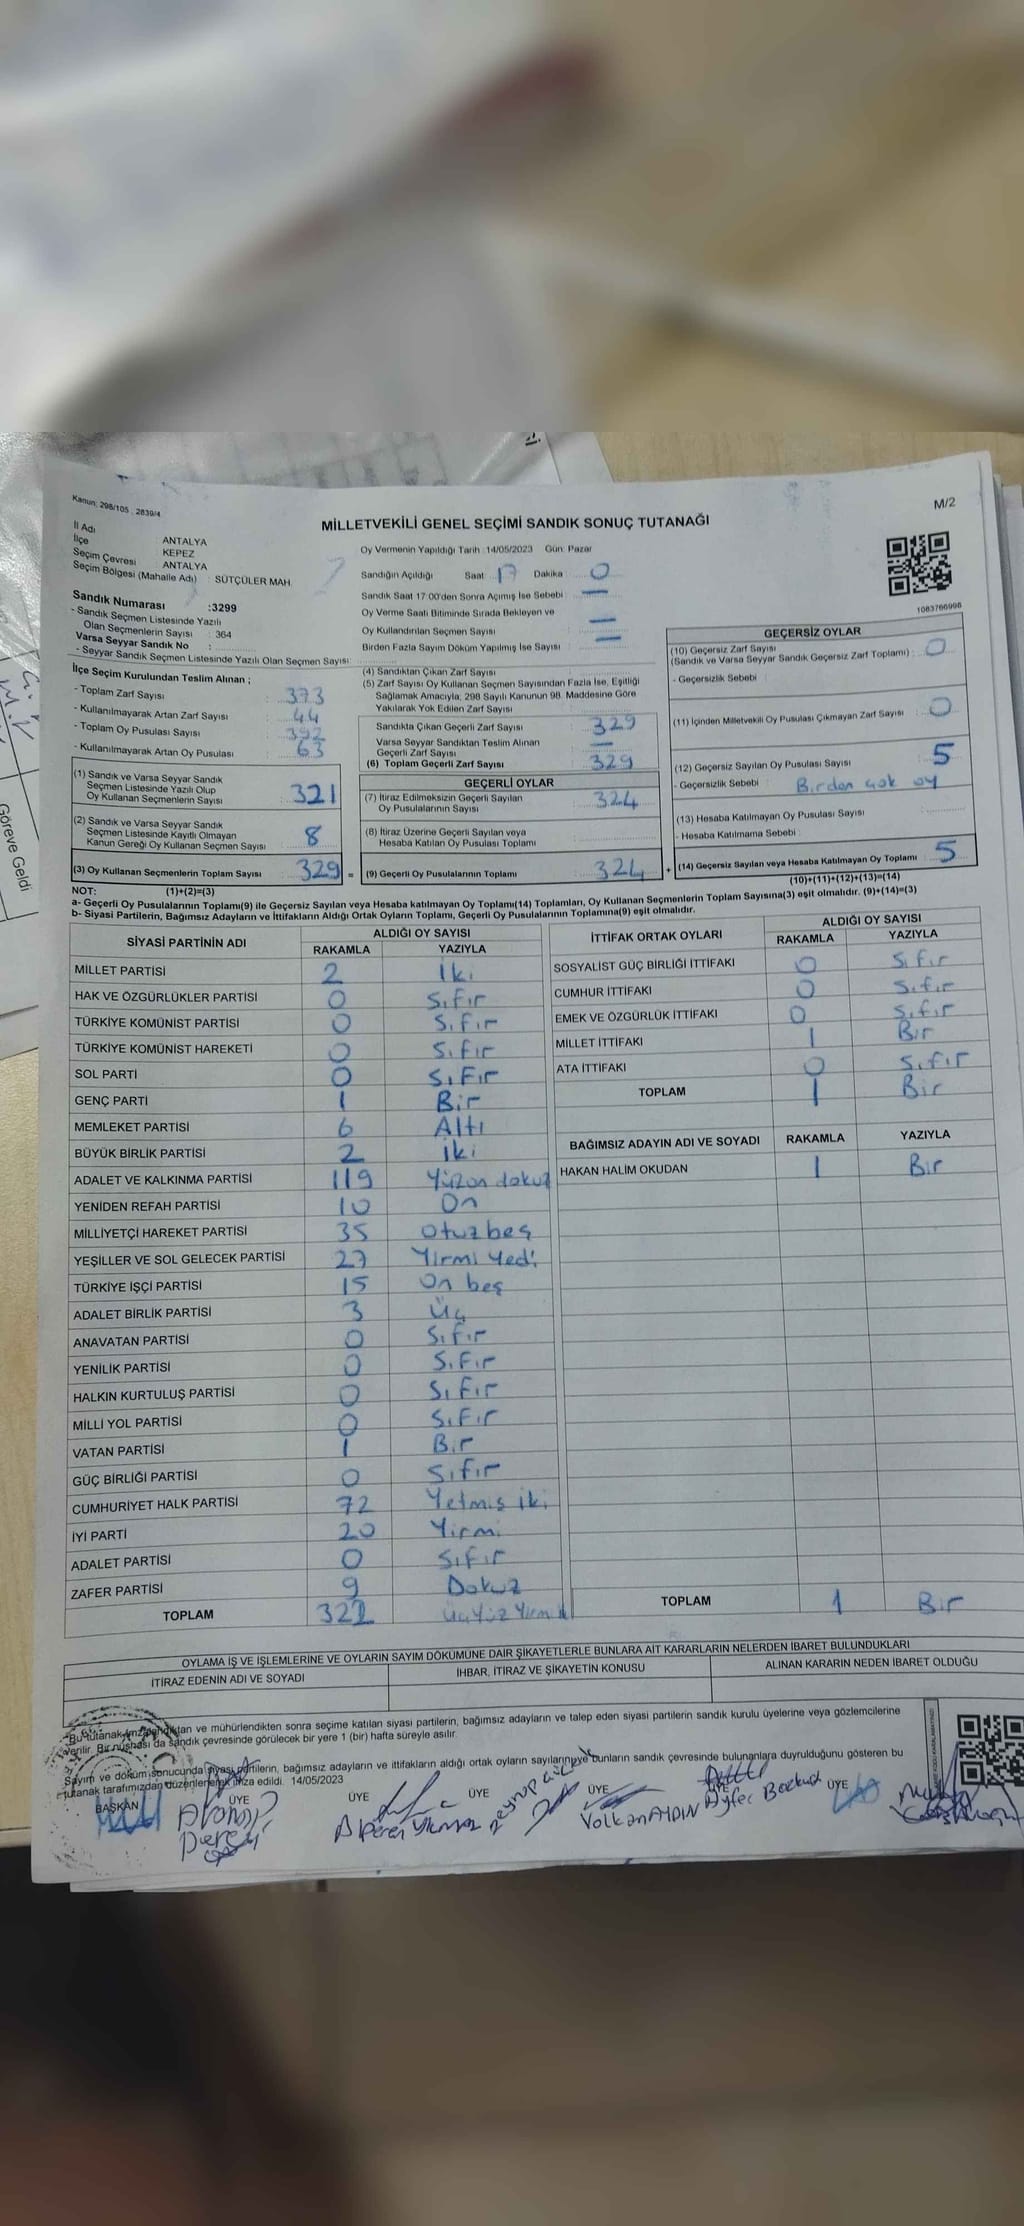 Kanun: 298/105 , 2839/4
M/2
MİLLETVEKİLİ GENEL SEÇİMİ SANDIK SONUÇ TUTANAĞI
İl Adı ANTALYA
İlçe KEPEZ
Seçim Çevresi ANTALYA
Seçim Bölgesi (Mahalle Adı) SÜTÇÜLER MAH.
Sandık Numarası :3299
- Sandık Seçmen Listesinde Yazılı
Olan Seçmenlerin Sayısı : 364
Varsa Seyyar Sandık No :
- Seyyar Sandık Seçmen Listesinde Yazılı Olan Seçmen Sayısı:
Oy Vermenin Yapıldığı Tarih :14/05/2023 Gün: Pazar
Sandığın Açıldığı Saat 17 Dakika : 0
Sandık Saat 17:00'den Sonra Açılmış İse Sebebi : —
Oy Verme Saati Bitiminde Sırada Bekleyen ve
Oy Kullandırılan Seçmen Sayısı : —
Birden Fazla Sayım Döküm Yapılmış İse Sayısı : —
1083766998
İlçe Seçim Kurulundan Teslim Alınan ;
- Toplam Zarf Sayısı : 373
- Kullanılmayarak Artan Zarf Sayısı : 44
- Toplam Oy Pusulası Sayısı : 392
- Kullanılmayarak Artan Oy Pusulası : 63
(1) Sandık ve Varsa Seyyar Sandık
Seçmen Listesinde Yazılı Olup
Oy Kullanan Seçmenlerin Sayısı : 321
(2) Sandık ve Varsa Seyyar Sandık
Seçmen Listesinde Kayıtlı Olmayan
Kanun Gereği Oy Kullanan Seçmen Sayısı : 8
(3) Oy Kullanan Seçmenlerin Toplam Sayısı : 329 =
(4) Sandıktan Çıkan Zarf Sayısı :
(5) Zarf Sayısı Oy Kullanan Seçmen Sayısından Fazla İse, Eşitliği
Sağlamak Amacıyla; 298 Sayılı Kanunun 98. Maddesine Göre
Yakılarak Yok Edilen Zarf Sayısı :
Sandıkta Çıkan Geçerli Zarf Sayısı : 329
Varsa Seyyar Sandıktan Teslim Alınan
Geçerli Zarf Sayısı : —
(6) Toplam Geçerli Zarf Sayısı : 329
GEÇERLİ OYLAR
(7) İtiraz Edilmeksizin Geçerli Sayılan
Oy Pusulalarının Sayısı : 324
(8) İtiraz Üzerine Geçerli Sayılan veya
Hesaba Katılan Oy Pusulası Toplamı :
(9) Geçerli Oy Pusulalarının Toplamı : 324 +
GEÇERSİZ OYLAR
(10) Geçersiz Zarf Sayısı
(Sandık ve Varsa Seyyar Sandık Geçersiz Zarf Toplamı) : 0
- Geçersizlik Sebebi :
(11) İçinden Milletvekili Oy Pusulası Çıkmayan Zarf Sayısı : 0
(12) Geçersiz Sayılan Oy Pusulası Sayısı : 5
- Geçersizlik Sebebi : Birden çok oy
(13) Hesaba Katılmayan Oy Pusulası Sayısı :
- Hesaba Katılmama Sebebi :
(14) Geçersiz Sayılan veya Hesaba Katılmayan Oy Toplamı : 5
NOT: (1)+(2)=(3) (10)+(11)+(12)+(13)=(14)
a- Geçerli Oy Pusulalarının Toplamı(9) ile Geçersiz Sayılan veya Hesaba katılmayan Oy Toplamı(14) Toplamları, Oy Kullanan Seçmenlerin Toplam Sayısına(3) eşit olmalıdır. (9)+(14)=(3)
b- Siyasi Partilerin, Bağımsız Adayların ve İttifakların Aldığı Ortak Oyların Toplamı, Geçerli Oy Pusulalarının Toplamına(9) eşit olmalıdır.
SİYASİ PARTİNİN ADI ALDIĞI OY SAYISI
RAKAMLA YAZIYLA
MİLLET PARTİSİ 2 İki
HAK VE ÖZGÜRLÜKLER PARTİSİ 0 Sıfır
TÜRKİYE KOMÜNİST PARTİSİ 0 Sıfır
TÜRKİYE KOMÜNİST HAREKETİ 0 Sıfır
SOL PARTİ 0 Sıfır
GENÇ PARTİ 1 Bir
MEMLEKET PARTİSİ 6 Altı
BÜYÜK BİRLİK PARTİSİ 2 İki
ADALET VE KALKINMA PARTİSİ 119 Yüzon dokuz
YENİDEN REFAH PARTİSİ 10 On
MİLLİYETÇİ HAREKET PARTİSİ 35 Otuzbeş
YEŞİLLER VE SOL GELECEK PARTİSİ 27 Yirmi Yedi
TÜRKİYE İŞÇİ PARTİSİ 15 On beş
ADALET BİRLİK PARTİSİ 3 Üç
ANAVATAN PARTİSİ 0 Sıfır
YENİLİK PARTİSİ 0 Sıfır
HALKIN KURTULUŞ PARTİSİ 0 Sıfır
MİLLİ YOL PARTİSİ 0 Sıfır
VATAN PARTİSİ 1 Bir
GÜÇ BİRLİĞİ PARTİSİ 0 Sıfır
CUMHURİYET HALK PARTİSİ 72 Yetmiş iki
İYİ PARTİ 20 Yirmi
ADALET PARTİSİ 0 Sıfır
ZAFER PARTİSİ 9 Dokuz
TOPLAM 322 Üçyüz Yirmi
İTTİFAK ORTAK OYLARI ALDIĞI OY SAYISI
RAKAMLA YAZIYLA
SOSYALİST GÜÇ BİRLİĞİ İTTİFAKI 0 Sıfır
CUMHUR İTTİFAKI 0 Sıfır
EMEK VE ÖZGÜRLÜK İTTİFAKI 0 Sıfır
MİLLET İTTİFAKI 1 Bir
ATA İTTİFAKI 0 Sıfır
TOPLAM 1 Bir
BAĞIMSIZ ADAYIN ADI VE SOYADI RAKAMLA YAZIYLA
HAKAN HALİM OKUDAN 1 Bir
TOPLAM 1 Bir
OYLAMA İŞ VE İŞLEMLERİNE VE OYLARIN SAYIM DÖKÜMÜNE DAİR ŞİKAYETLERLE BUNLARA AİT KARARLARIN NELERDEN İBARET BULUNDUKLARI
İTİRAZ EDENİN ADI VE SOYADI İHBAR, İTİRAZ VE ŞİKAYETİN KONUSU ALINAN KARARIN NEDEN İBARET OLDUĞU
"Bu tutanak imzalandıktan ve mühürlendikten sonra seçime katılan siyasi partilerin, bağımsız adayların ve talep eden siyasi partilerin sandık kurulu üyelerine veya gözlemcilerine
verilir. Bir nüshası da sandık çevresinde görülecek bir yere 1 (bir) hafta süreyle asılır.
Sayım ve döküm sonucunda siyasi partilerin, bağımsız adayların ve ittifakların aldığı ortak oyların sayılarını ve bunların sandık çevresinde bulunanlara duyrulduğunu gösteren bu
tutanak tarafımızdan düzenlenerek imza edildi. 14/05/2023
BAŞKAN ÜYE ÜYE ÜYE ÜYE ÜYE ÜYE
Alperen Yılmaz
Zeynep
Volkan AYDIN
Göreve Geldi